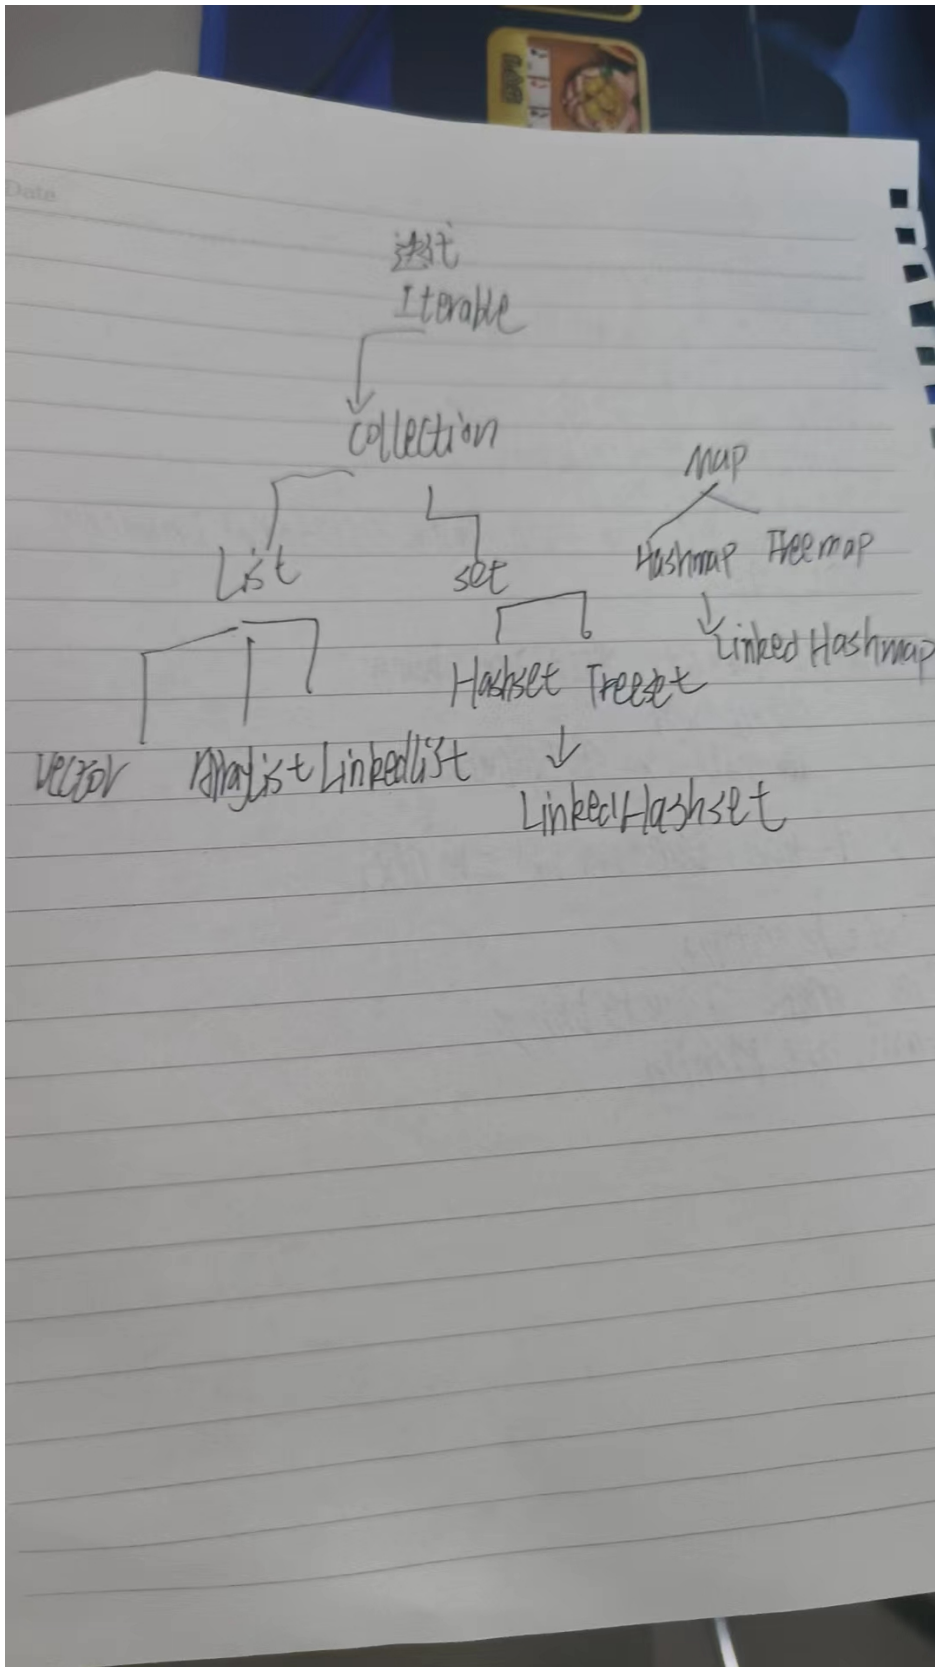 Date
迭代
Iterable
Collection
Map
List
set
Hashmap Treemap
LinkedHashmap
Hashset Treeset
Vector ArrayList LinkedList
LinkedHashset